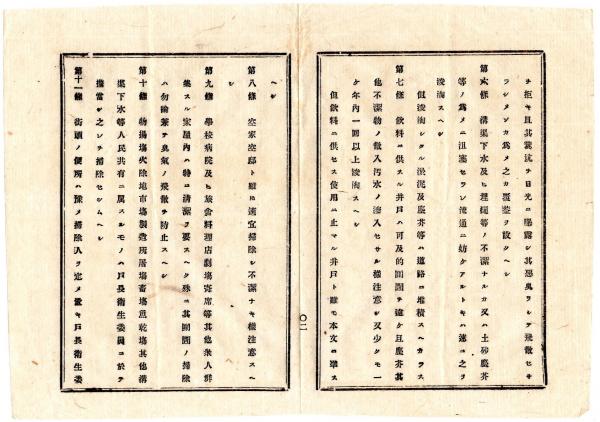 ヲ拒キ且其糞汁ヲ日光ニ曝露シ其惡臭ヲシテ飛散セサ
ラシメンカ爲メ之カ覆蓋ヲ設クヘシ
第六條 溝渠下水及ヒ埋樋等ノ不潔ナルカ又ハ土砂塵芥
等ノ爲メニ沮塞セラレ流通ニ妨ケアルトキハ速ニ之ヲ
浚洶スヘシ
但浚洶シタル淤泥及塵芥等ハ道路ニ堆積スヘカラス
第七條 飲料ニ供スル井戸ハ可及的圊圂ヲ遠ケ且塵芥其
他不潔物ノ散入汚水ノ滲入セサル樣注意シ又少クモ一
ケ年內一回以上浚洶スヘシ
但飲料ニ供セス使用ニ止マル井戸ト雖モ本文ニ準ス
〇二
ヘシ
第八條 空家空邸ト雖ヒ適宜掃除シ不潔ナキ樣注意スヘ
シ
第九條 學校病院及ヒ旅舍料理店劇塲寄席等其他衆人群
集スル家屋內ハ特ニ清潔ヲ要スヘク殊ニ其圊圂ノ掃除
ハ勿論兼テ臭氣ノ飛散ヲ防止スヘシ
第十條 物揚塲火除地市塲製造所屠塲畜塲魚乾塲其他溝
渠下水等人民共有ニ屬スルモノハ戸長衛生委員ニ於テ
擔當シ之レヲ掃除セシムヘシ
第十一條 街頭ノ便所ハ除メ掃除人ヲ定メ置キ戸長衛生委